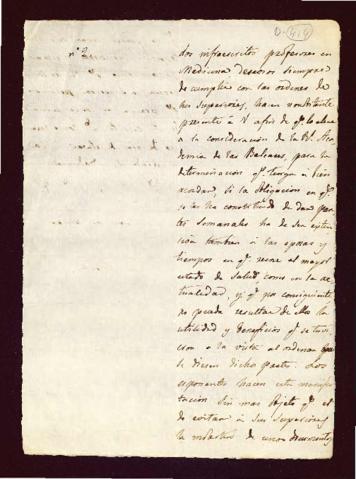 D-414
nº 2
Los infraescritos profesores en
Medicina deseosos siempre
de cumplir con las ordenes de
sus Superiores, hacen
presente à V afin de qe lo eleve
a la consideracion de la Rl. Aca
demia de las Baleares, para la
determinacion qe. tenga a bien
acordar, si la obligacion en qe.
se les ha constituido de dar par
tes Semanales ha de ser exten
siva tambien à las epocas y
tiempos en qe. reine el mayor
estado de Salud como en la ac
tualidad, y qe por consiguiente
no pueda resultar de ellos la
utilidad y beneficios qe se tuvie
ron a la vista al ordenar que
se diesen dichos partes. Los
esponentes hacen esta manifes
tacion sin mas objeto qe el
de evitar à sus Superiores
la de unos documentos